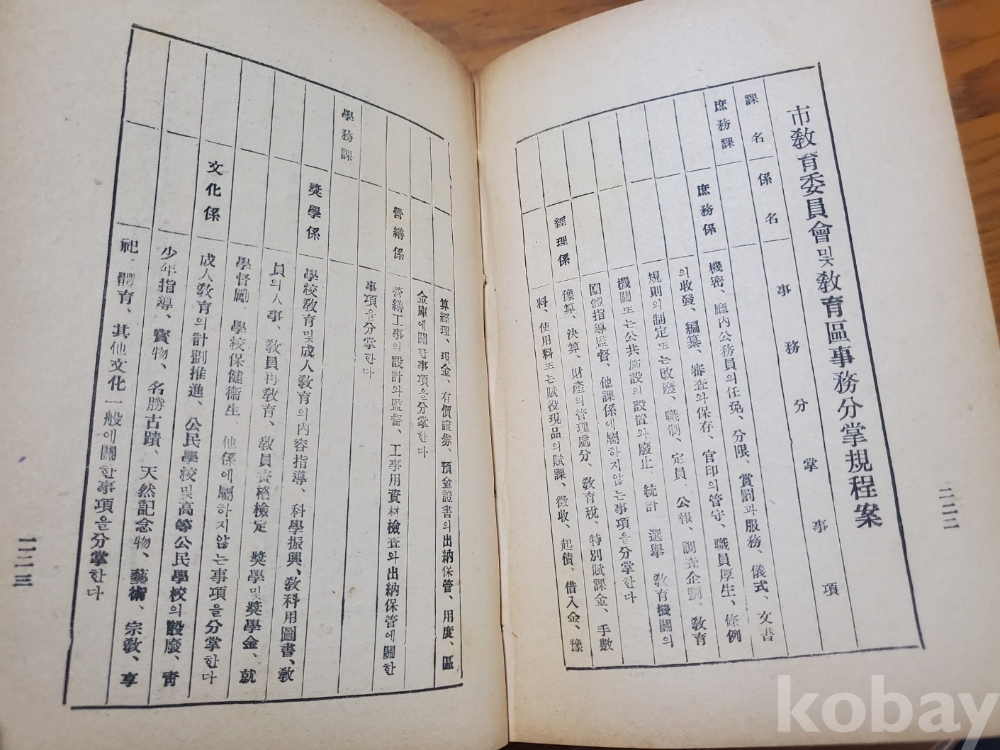 市敎育委員會및敎育區事務分掌規程案
課名 係名 事務分掌事項
庶務課 庶務係 機密、廳內公務員의任免、分限、賞罰과服務、儀式、文書
의收發、編纂、審査와保存、官印의管守、職員厚生、條例
規則의制定또는改廢、職制、定員、公報、調査企劃、敎育
機關또는公共施設의設置와廢止、統計 選擧 敎育機關의
團體指導監督、他課係에屬하지않는事項을分掌한다
經理係 豫算、決算、財產의管理處分、敎育稅、特別賦課金、手數
料、使用料또는賦役現品의賦課、徵收、起債、借入金、豫
一二二
算經理、現金、有價證券、預金證書의出納保管、用度、區
金庫에關한事項을分掌한다
營繕係 營繕工事의設計와監督、工事用資材檢査와出納保管에關한
事項을分掌한다
學務課 奬學係 學校敎育및成人敎育의內容指導、科學振興、敎科用圖書、敎
員의人事、敎員再敎育、敎員資格檢定 奬學및奬學金、就
學督勵、學校保健衞生、他係에屬하지않는事項을分掌한다
文化係 成人敎育의計劃推進、公民學校및高等公民學校의設廢、靑
少年指導、寶物、名勝古蹟、天然記念物、藝術、宗敎、享
祀、體育、其他文化一般에關한事項을分掌한다
一二三
kobay